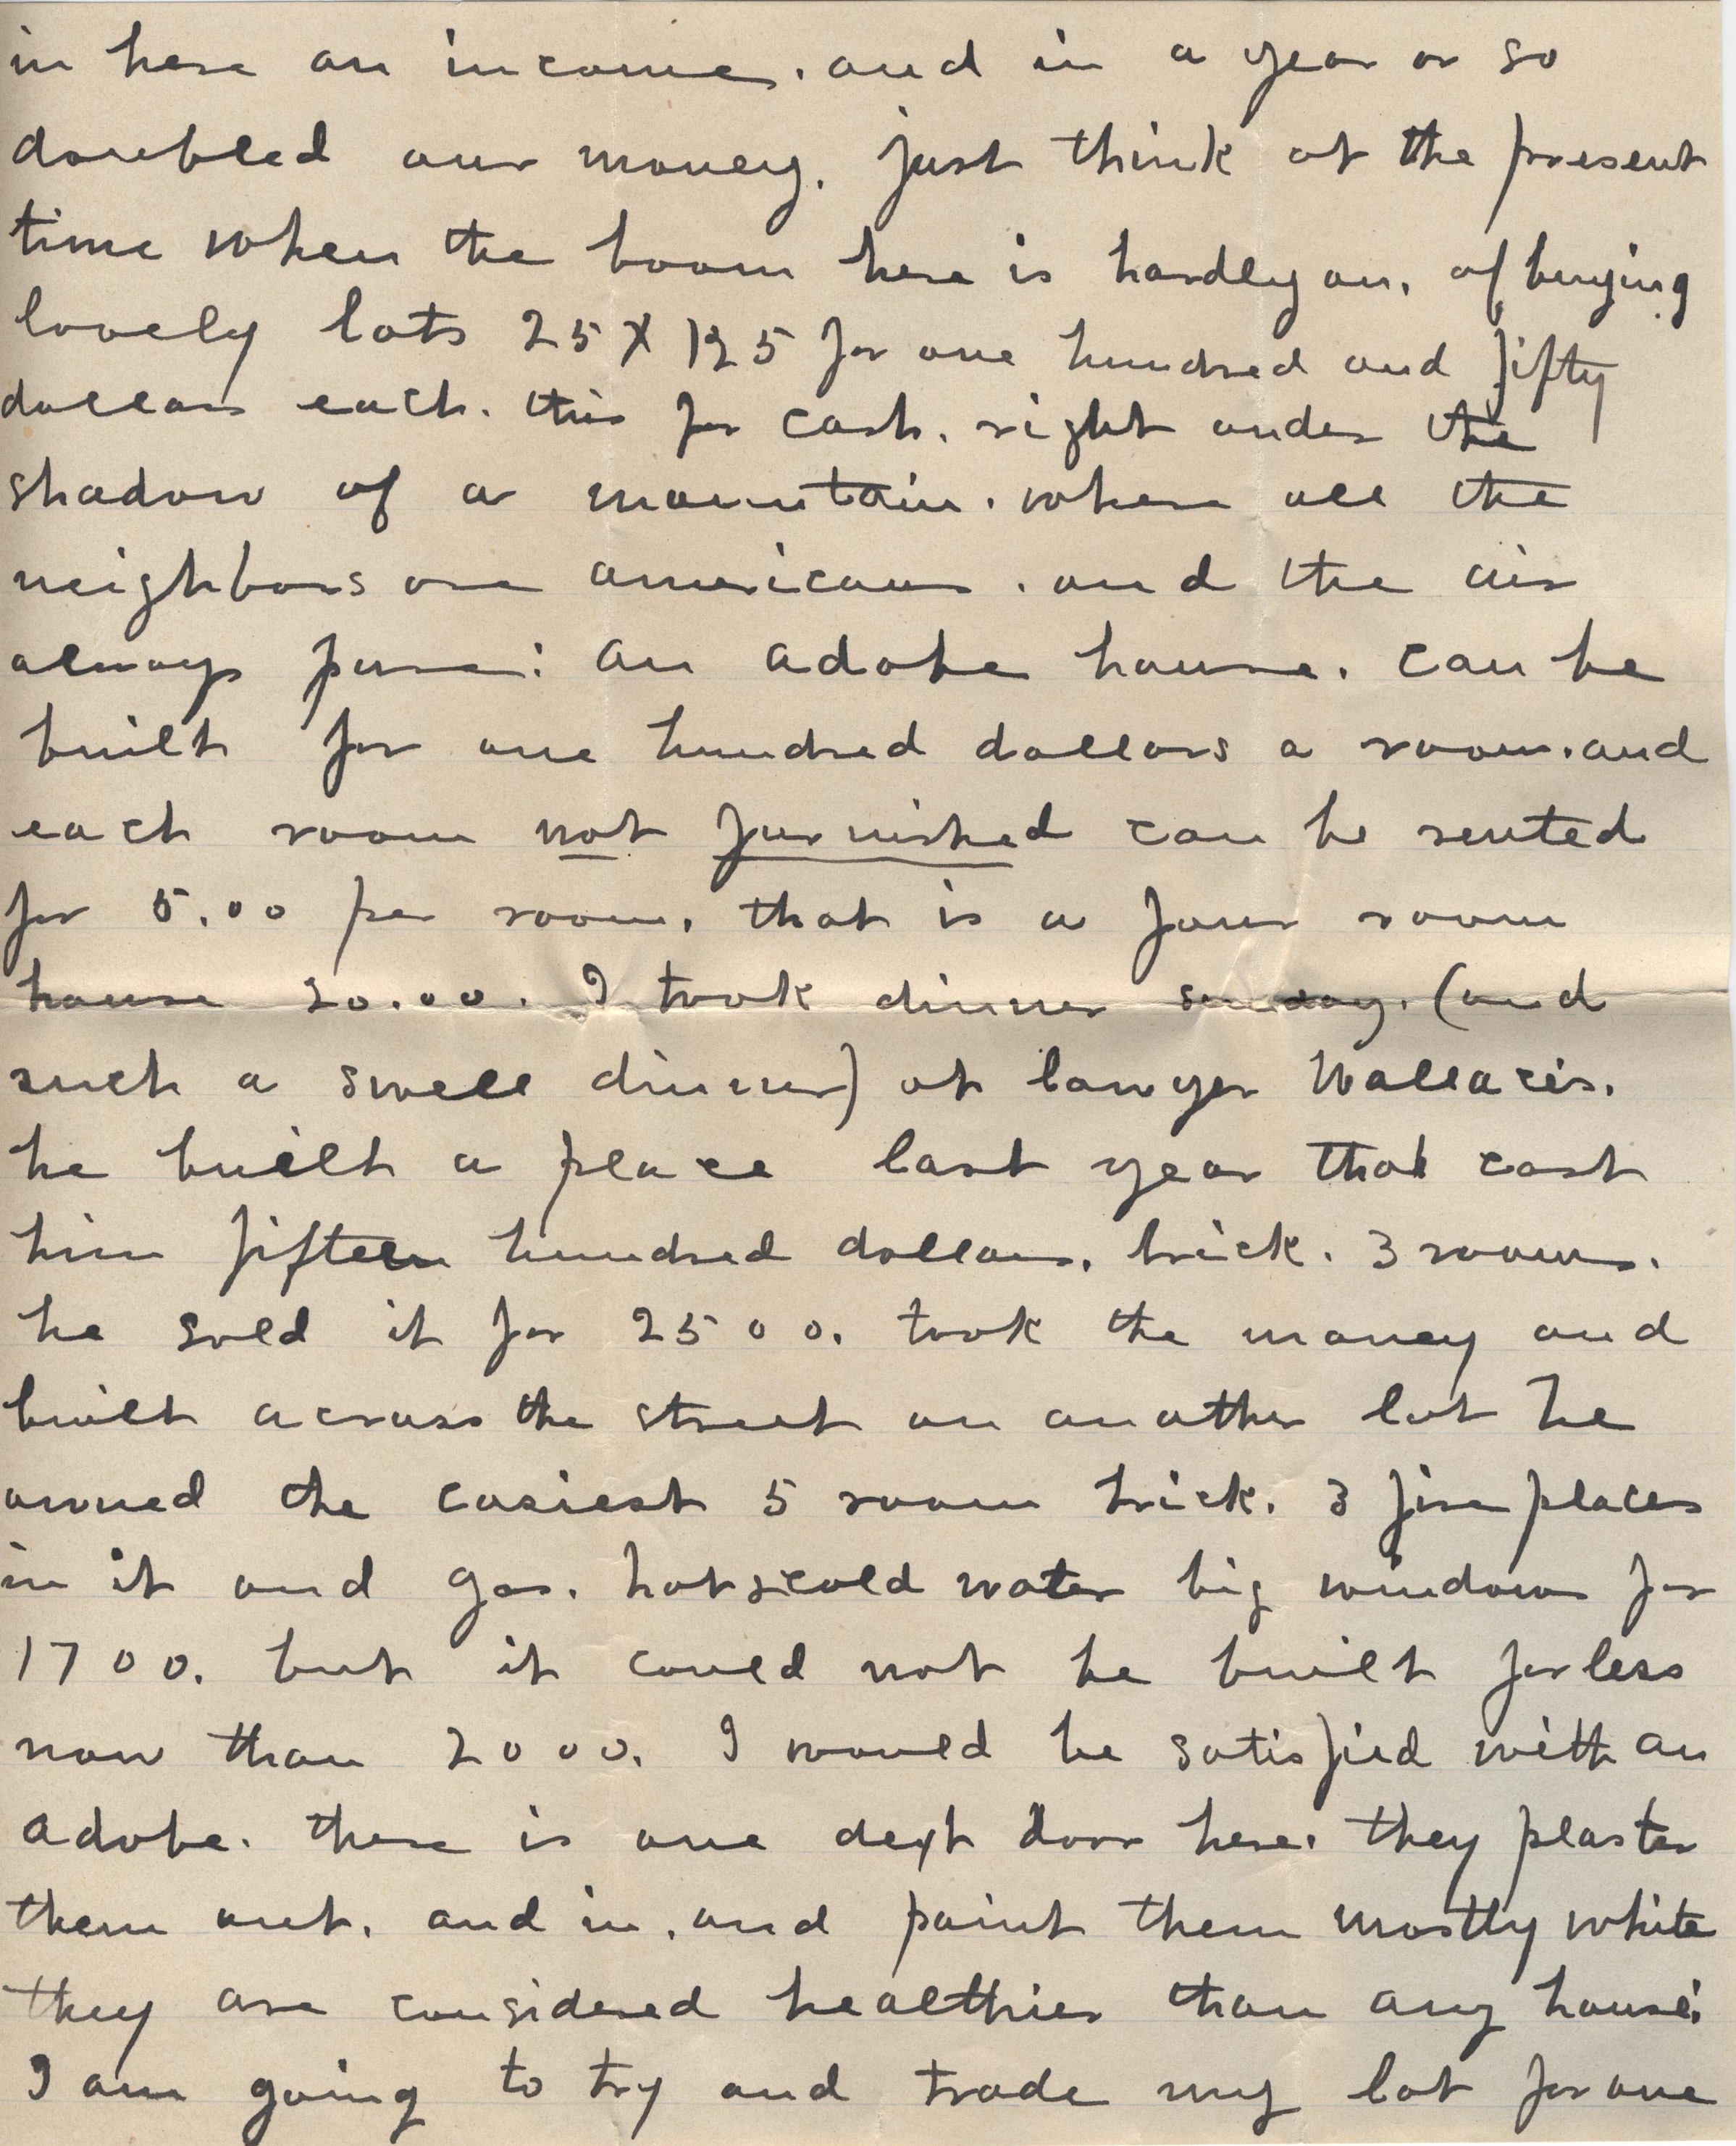 in here an income. and in a year or so
doubled our money. just think at the present
time when the boom here is hardly on. of buying
lovely lots 25 X 125 for one hundred and fifty
dollars each. this for cash. right under the
shadow of a mountain. where all the
neighbors are americans. and the air
always pure: an adobe house. can be
built for one hundred dollars a room. and
each room not furnished can be rented
for 5.00 per room. that is a four room
house 20.00. I took dinner sunday. (and
such a swell dinner) at lawyer Wallaces.
he built a place last year that cost
him fifteen hundred dollars. brick. 3 rooms.
he sold it for 2500. took the money and
built across the street on another lot he
owned the cosiest 5 room brick. 3 fire places
in it and gas. hot & cold water big windows for
1700. but it could not be built for less
now than 2000. I would be satisfied with an
adobe. there is one dext door here. they plaster
them out. and in. and paint them mostly white
they are considered healthier than any house.
I am going to try and trade my lot for one